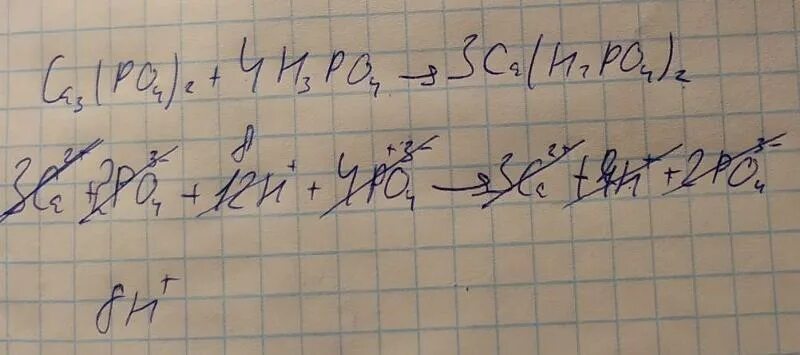 Ca₃(PO₄)₂ + 4H₃PO₄ → 3Ca(H₂PO₄)₂
8
3Ca²⁺ + 2PO₄³⁻ + 12H⁺ + 4PO₄³⁻ → 3Ca²⁺ + 4H⁺ + 2PO₄³⁻
8H⁺